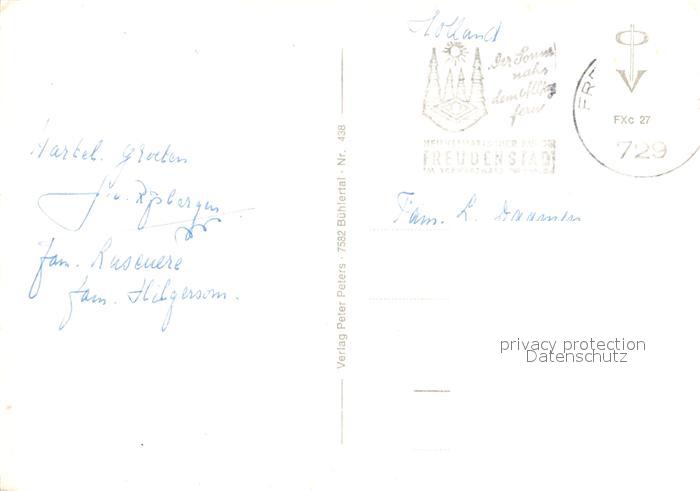 Hartel. Groeten
v. Rijsbergen
fam.
fam. Hilgersom.
Verlag Peter Peters · 7582 Bühlertal · Nr. 438
Holland
Der Sonne
nah,
dem Alltag
fern
FREUDENSTADT
FR
FXc 27
729
Fam. L. Daamen
privacy protection
Datenschutz